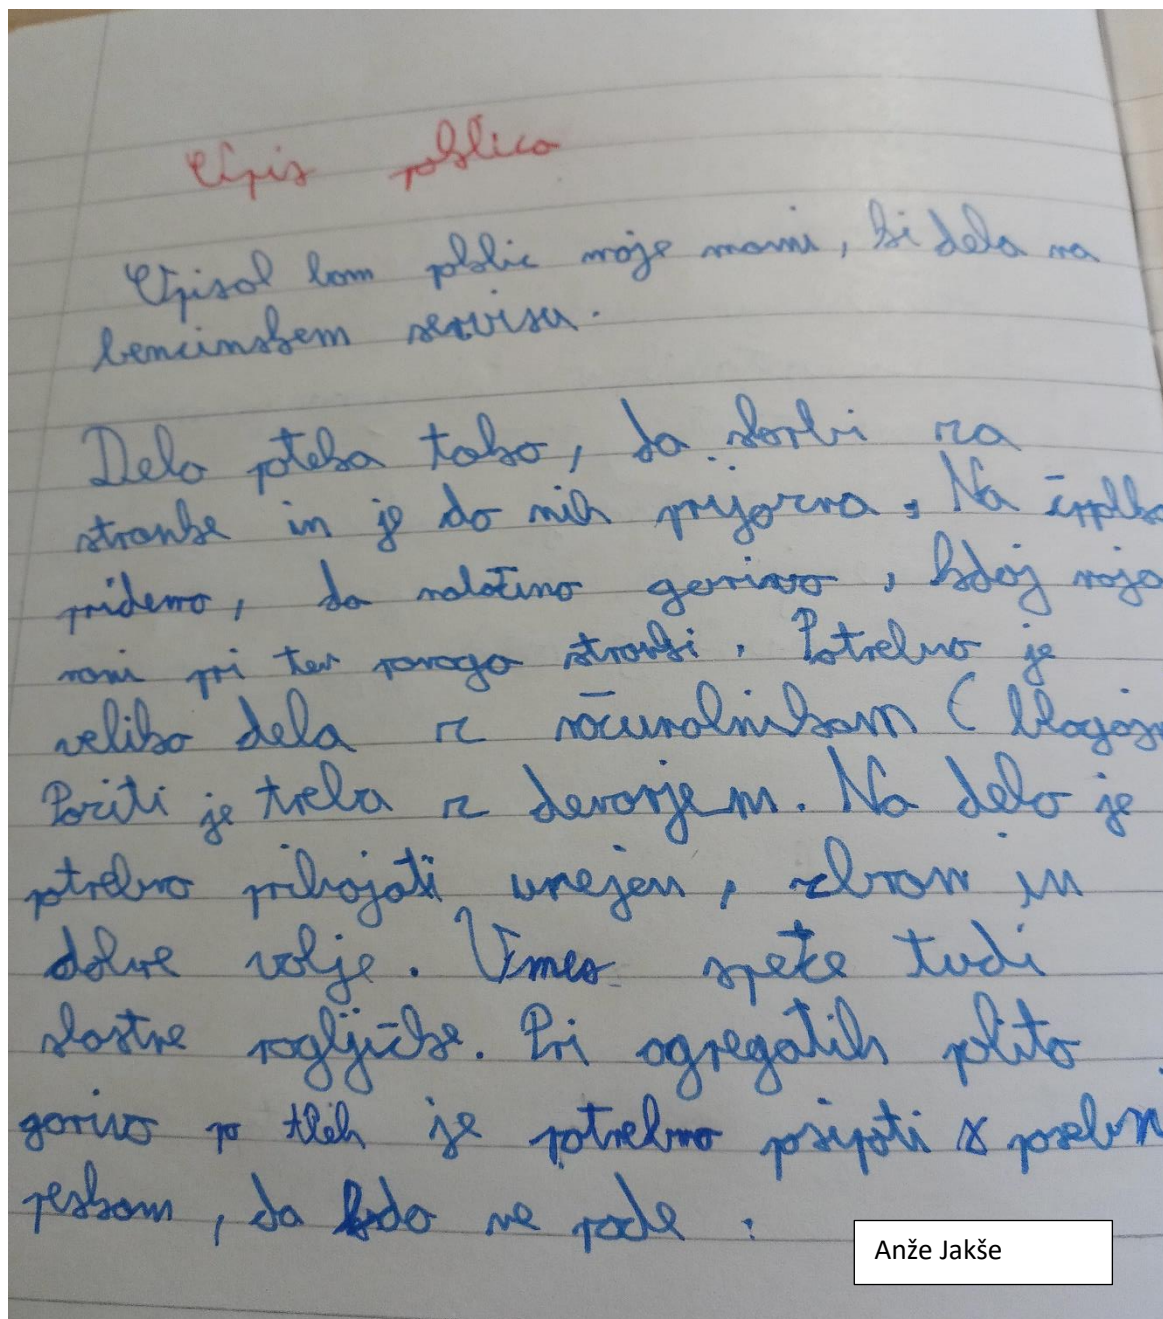 Opis poklica
Opisal bom poklic moje mami, ki dela na
bencinskem servisu.
Delo poteka tako, da skrbi za
stranke in je do nih prijazna. Na črpalko
pridemo, da natočimo gorivo, kdaj moja
mami pri tem pomaga stranki. Potrebno je
veliko dela z računalnikam (blagaj
Paziti je treba z denarjem. Na delo je
potrebno prihajati urejen, zbran in
dobre volje. Vmes speče tudi
slastne rogljičke. Pri agregatih polito
gorivo po tleh je potrebno posipati s posebni
peskom, da kdo ne pade.
Anže Jakše